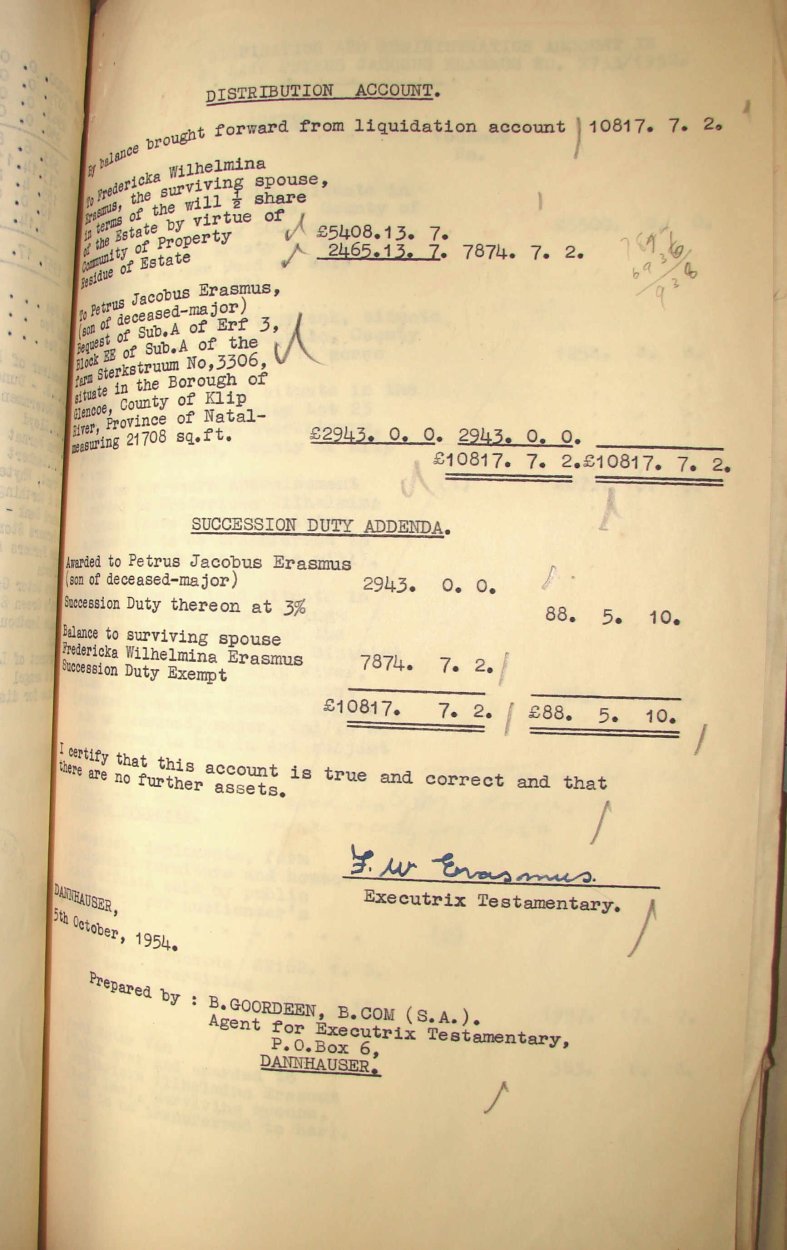 DISTRIBUTION ACCOUNT.
By balance brought forward from liquidation account 10817. 7. 2.
To Fredericka Wilhelmina
Erasmus, the surviving spouse,
in terms of the will ½ share
of the Estate by virtue of
Community of Property £5408.13. 7.
Residue of Estate 2465.13. 7. 7874. 7. 2.
To Petrus Jacobus Erasmus,
(son of deceased-major)
Bequest of Sub.A of Erf 3,
Block EE of Sub.A of the
farm Sterkstruum No,3306,
situate in the Borough of
Glencoe, County of Klip
River, Province of Natal-
measuring 21708 sq.ft. £2943. 0. 0. 2943. 0. 0.
£10817. 7. 2. £10817. 7. 2.
SUCCESSION DUTY ADDENDA.
Awarded to Petrus Jacobus Erasmus
(son of deceased-major) 2943. 0. 0.
Succession Duty thereon at 3% 88. 5. 10.
Balance to surviving spouse
Fredericka Wilhelmina Erasmus 7874. 7. 2.
Succession Duty Exempt
£10817. 7. 2. £88. 5. 10.
I certify that this account is true and correct and that
there are no further assets.
F. W Erasmus.
Executrix Testamentary.
DANNHAUSER,
5th October, 1954.
Prepared by : B.GOORDEEN, B.COM (S.A.).
Agent for Executrix Testamentary,
P.O.Box 6,
DANNHAUSER.